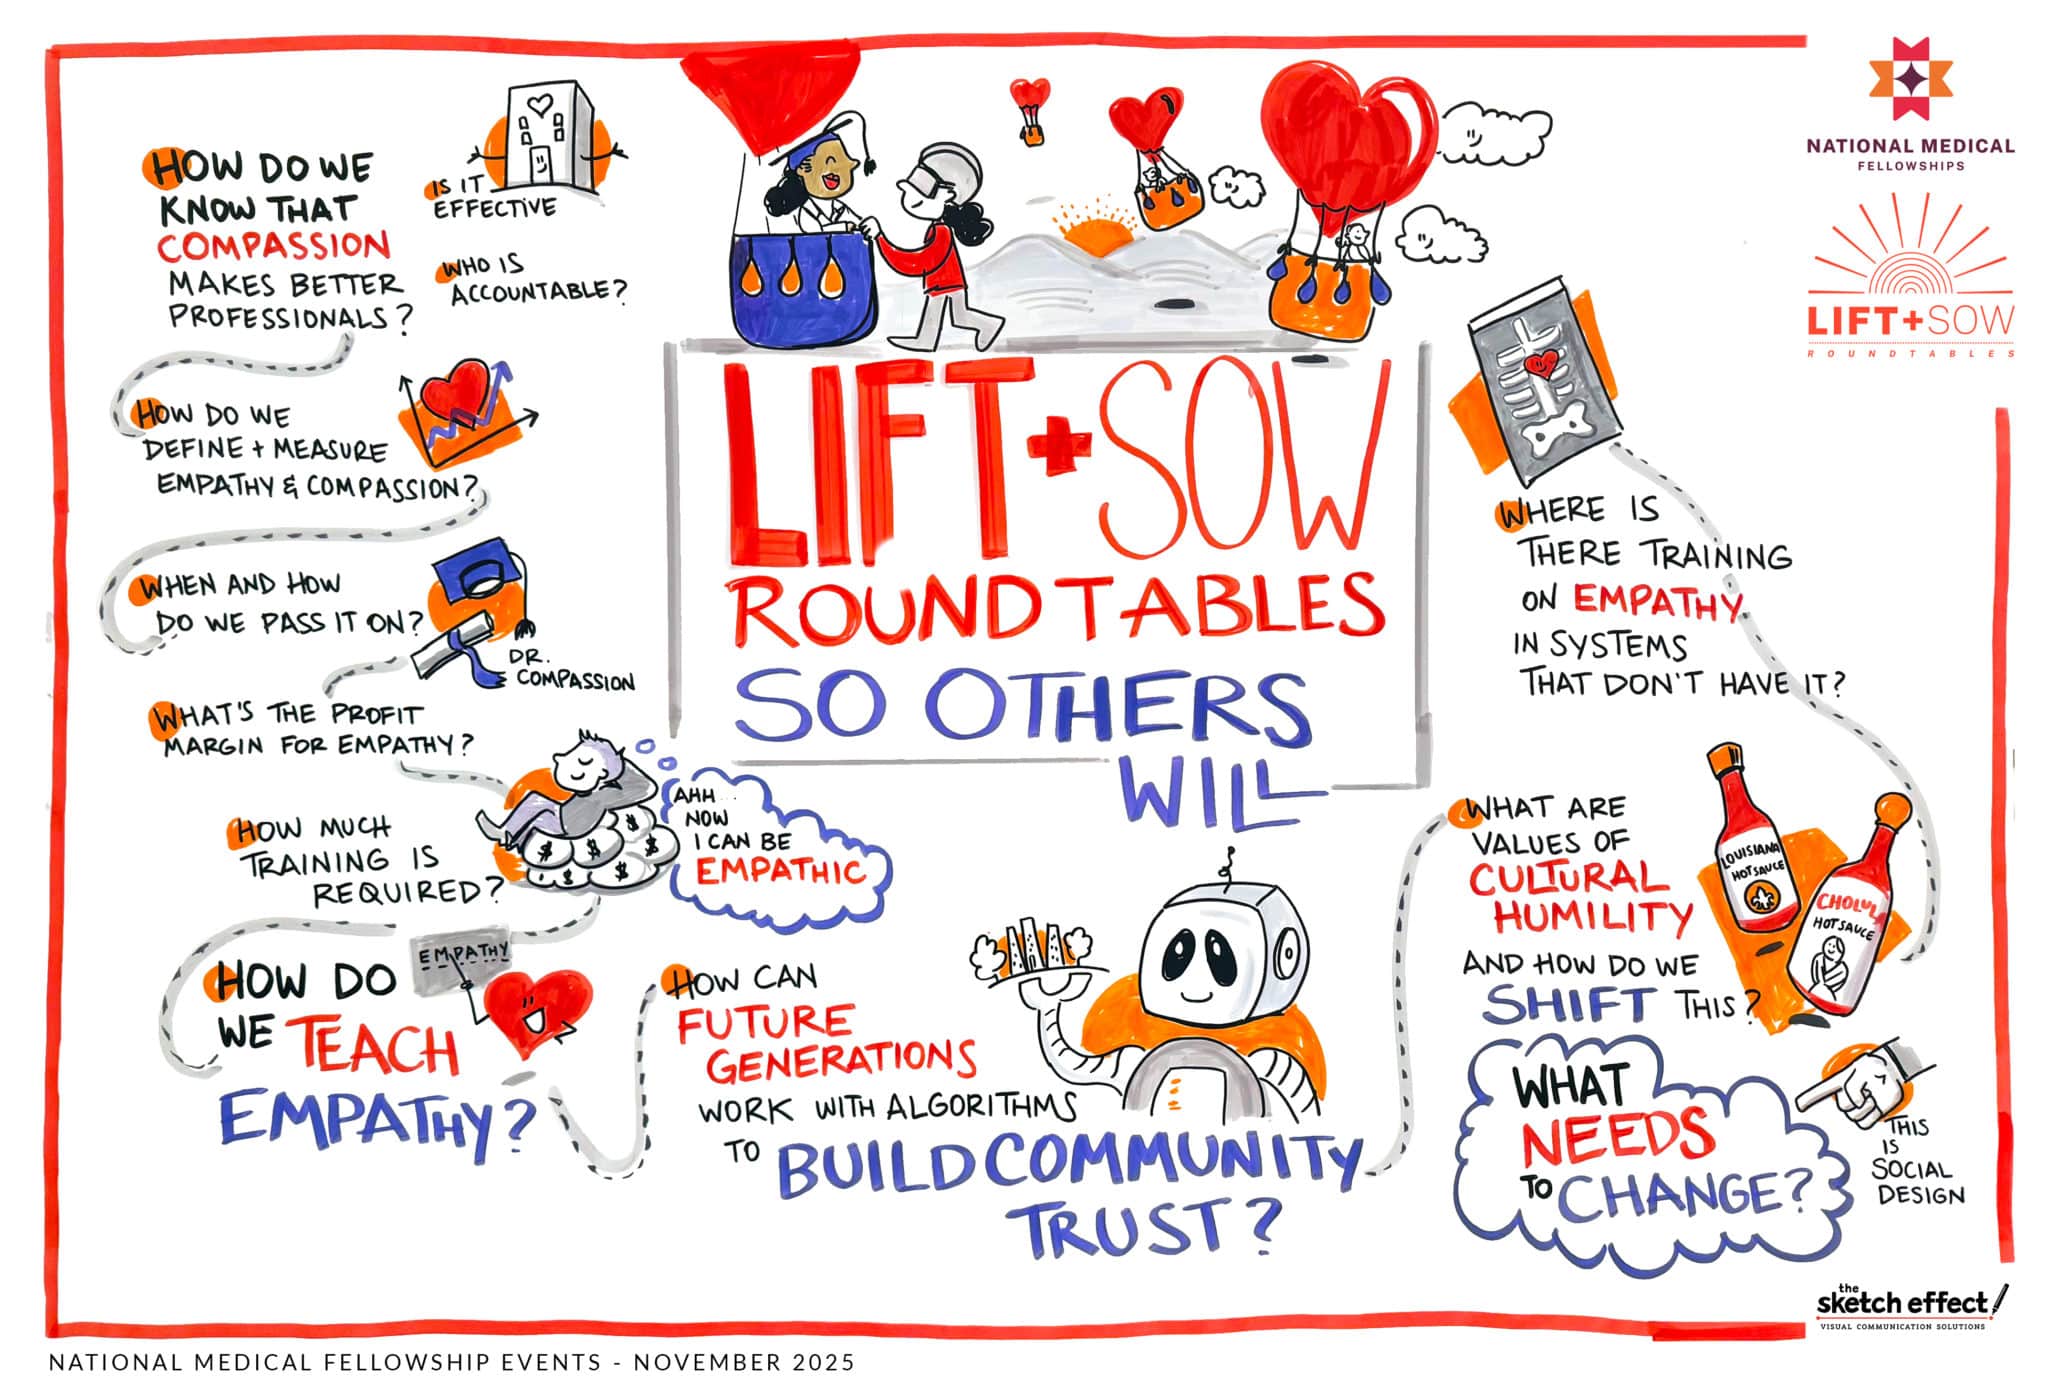 HOW DO WE
KNOW THAT
COMPASSION
MAKES BETTER
PROFESSIONALS?
IS IT
EFFECTIVE
WHO IS
ACCOUNTABLE?
HOW DO WE
DEFINE + MEASURE
EMPATHY & COMPASSION?
WHEN AND HOW
DO WE PASS IT ON?
DR.
COMPASSION
WHAT'S THE PROFIT
MARGIN FOR EMPATHY?
AHH...
NOW
I CAN BE
EMPATHIC
$
$
$
$
$
$
HOW MUCH
TRAINING IS
REQUIRED?
EMPATHY
HOW DO
WE TEACH
EMPATHY?
LIFT+SOW
ROUNDTABLES
SO OTHERS
WILL
HOW CAN
FUTURE
GENERATIONS
WORK WITH ALGORITHMS
TO BUILD COMMUNITY
TRUST?
NATIONAL MEDICAL
FELLOWSHIPS
LIFT+SOW
ROUNDTABLES
WHERE IS
THERE TRAINING
ON EMPATHY
IN SYSTEMS
THAT DON'T HAVE IT?
WHAT ARE
VALUES OF
CULTURAL
HUMILITY
AND HOW DO WE
SHIFT THIS?
LOUISIANA
HOT SAUCE
CHOLUL
HOT SAUCE
WHAT
NEEDS
TO CHANGE?
THIS
IS
SOCIAL
DESIGN
the
sketch effect
VISUAL COMMUNICATION SOLUTIONS
NATIONAL MEDICAL FELLOWSHIP EVENTS - NOVEMBER 2025